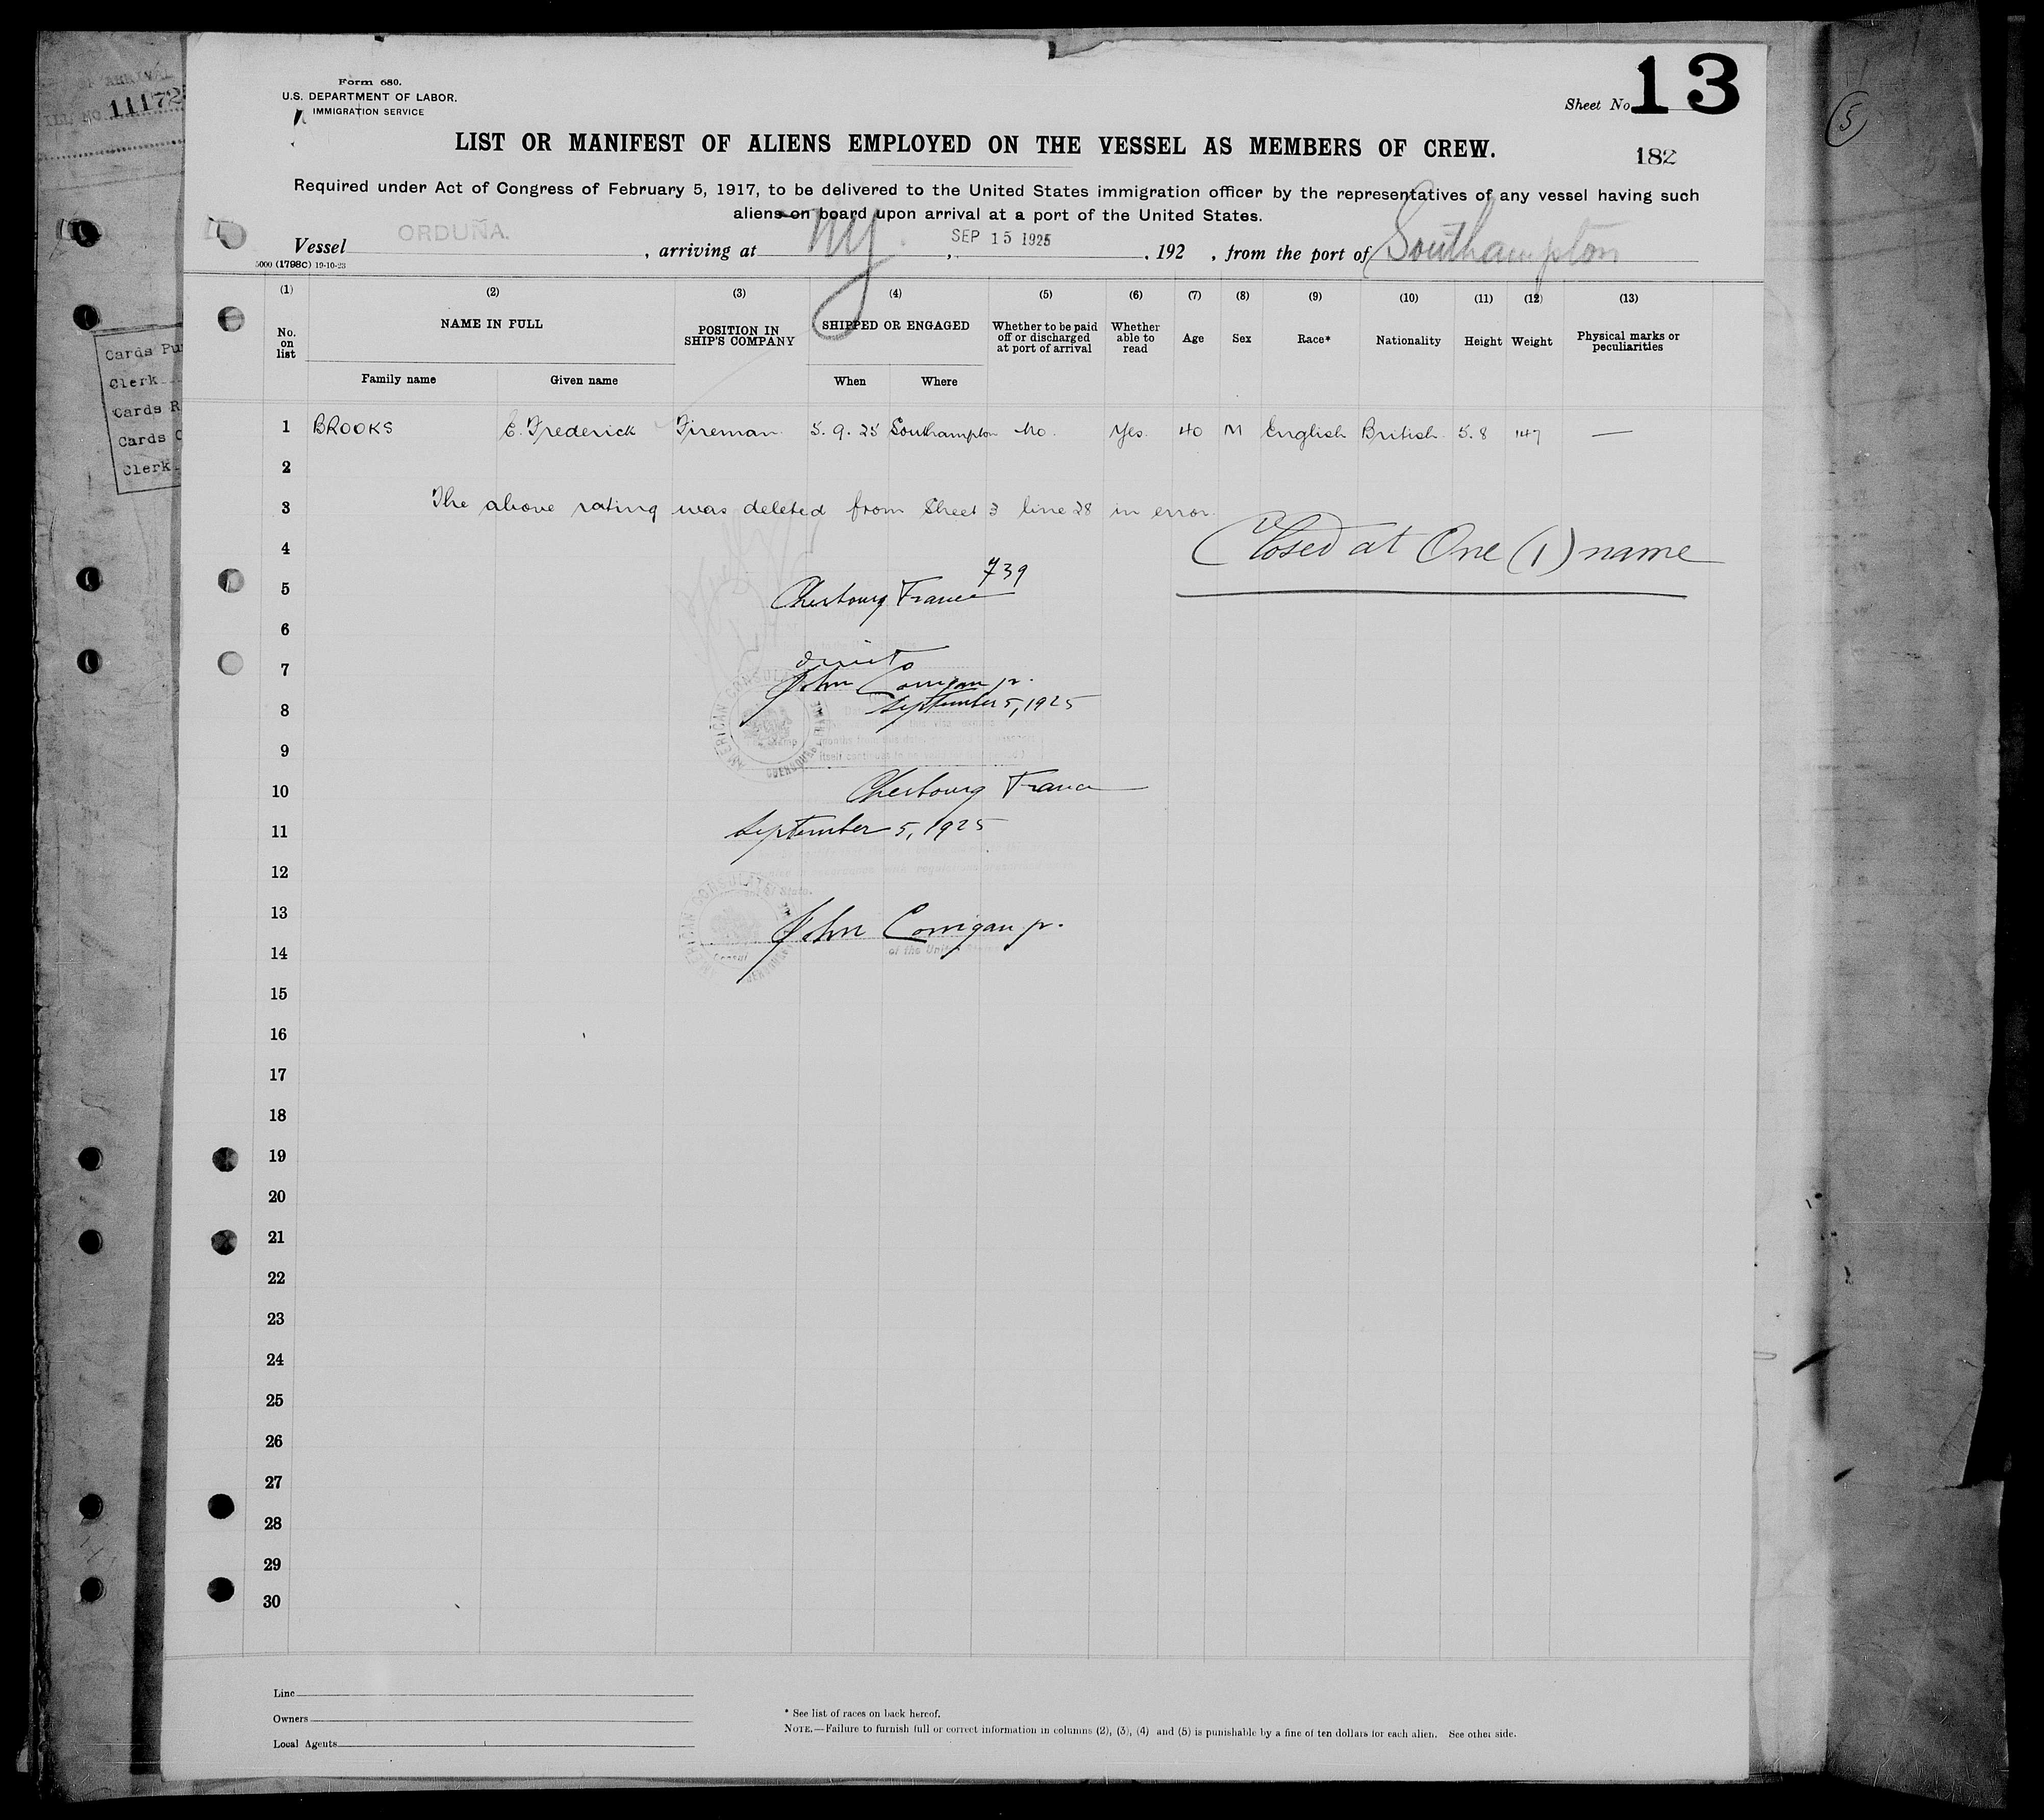 OF ARRIVAL
11172
Cards Pu
Clerk
Cards R
Cards C
Clerk
Form 680.
U.S. DEPARTMENT OF LABOR.
IMMIGRATION SERVICE
Sheet No. 13
5
LIST OR MANIFEST OF ALIENS EMPLOYED ON THE VESSEL AS MEMBERS OF CREW.
182
Required under Act of Congress of February 5, 1917, to be delivered to the United States immigration officer by the representatives of any vessel having such
aliens on board upon arrival at a port of the United States.
Vessel ORDUÑA. , arriving at NY. , SEP 15 1925 , 192 , from the port of Southampton
5000 (1798C) 19-10-23
(1) (2) (3) (4) (5) (6) (7) (8) (9) (10) (11) (12) (13)
No. on list NAME IN FULL POSITION IN SHIP'S COMPANY SHIPPED OR ENGAGED Whether to be paid off or discharged at port of arrival Whether able to read Age Sex Race* Nationality Height Weight Physical marks or peculiarities
Family name Given name When Where
1 BROOKS E. Frederick Fireman 5.9.25 Southampton No. Yes. 40 M English British 5.8 147 —
2
3 The above rating was deleted from Sheet 3 line 28 in error.
4 Closed at One (1) name
739
5 Cherbourg France
6
7 direct
John Corrigan jr.
8 September 5, 1925
AMERICAN CONSULATE
9
10 Cherbourg France
11 September 5, 1925
12
13 John Corrigan jr.
14 of the United
15
16
17
18
19
20
21
22
23
24
25
26
27
28
29
30
Line
Owners
Local Agents
* See list of races on back hereof.
NOTE.—Failure to furnish full or correct information in columns (2), (3), (4) and (5) is punishable by a fine of ten dollars for each alien. See other side.